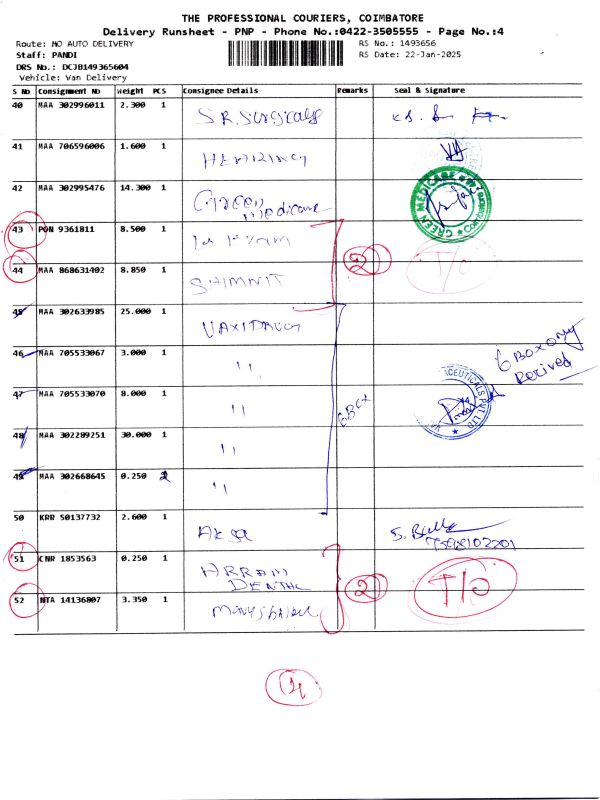 THE PROFESSIONAL COURIERS, COIMBATORE
Delivery Runsheet - PNP - Phone No.:0422-3505555 - Page No.:4
Route: MO AUTO DELIVERY RS No.: 1493656
Staff: PANDI RS Date: 22-Jan-2025
DRS No.: DCJB149365604
Vehicle: Van Delivery
S No Consignment No Weight PCS Consignee Details Remarks Seal & Signature
40 MAA 302996011 2.300 1 S.R. Surgicals
41 MAA 706596006 1.600 1
42 MAA 302995476 14.300 1 Green medicare GREEN MEDICARE
43 PON 9361811 8.500 1
44 MAA 868631402 8.850 1 SHIMNIT 2 T/O
45 MAA 302633985 25.000 1 VAXIDRUG
46 MAA 705533067 3.000 1 " 6 Box only
47 MAA 705533070 8.000 1 " 6 Box
48 MAA 302289251 30.000 1 "
49 MAA 302668645 0.250 2 "
50 KRR 50137732 2.600 1
51 CNR 1853563 0.250 1 DENTAL
52 NTA 14136807 3.350 1 2 T/O